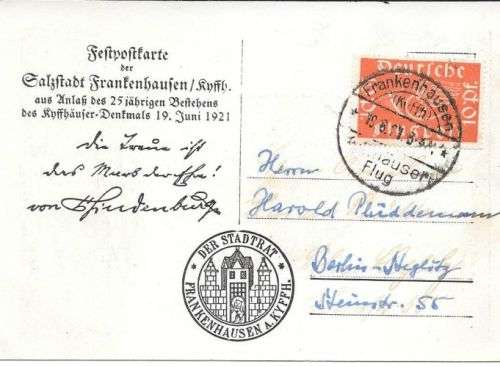 Festpostkarte
der
Salzstadt Frankenhausen/Kyffh.
aus Anlaß des 25jährigen Bestehens
des Kyffhäuser-Denkmals 19. Juni 1921
die Treue ist
das Mark der Ehre!
von Hindenburg
DER STADTRAT
FRANKENHAUSEN A. KYFFH.
Deutsche
10 Pf.
Frankenhausen
(Kyffh)
Flug
Herrn
Harold Plüddemann
Berlin-Steglitz
Steinstr. 55